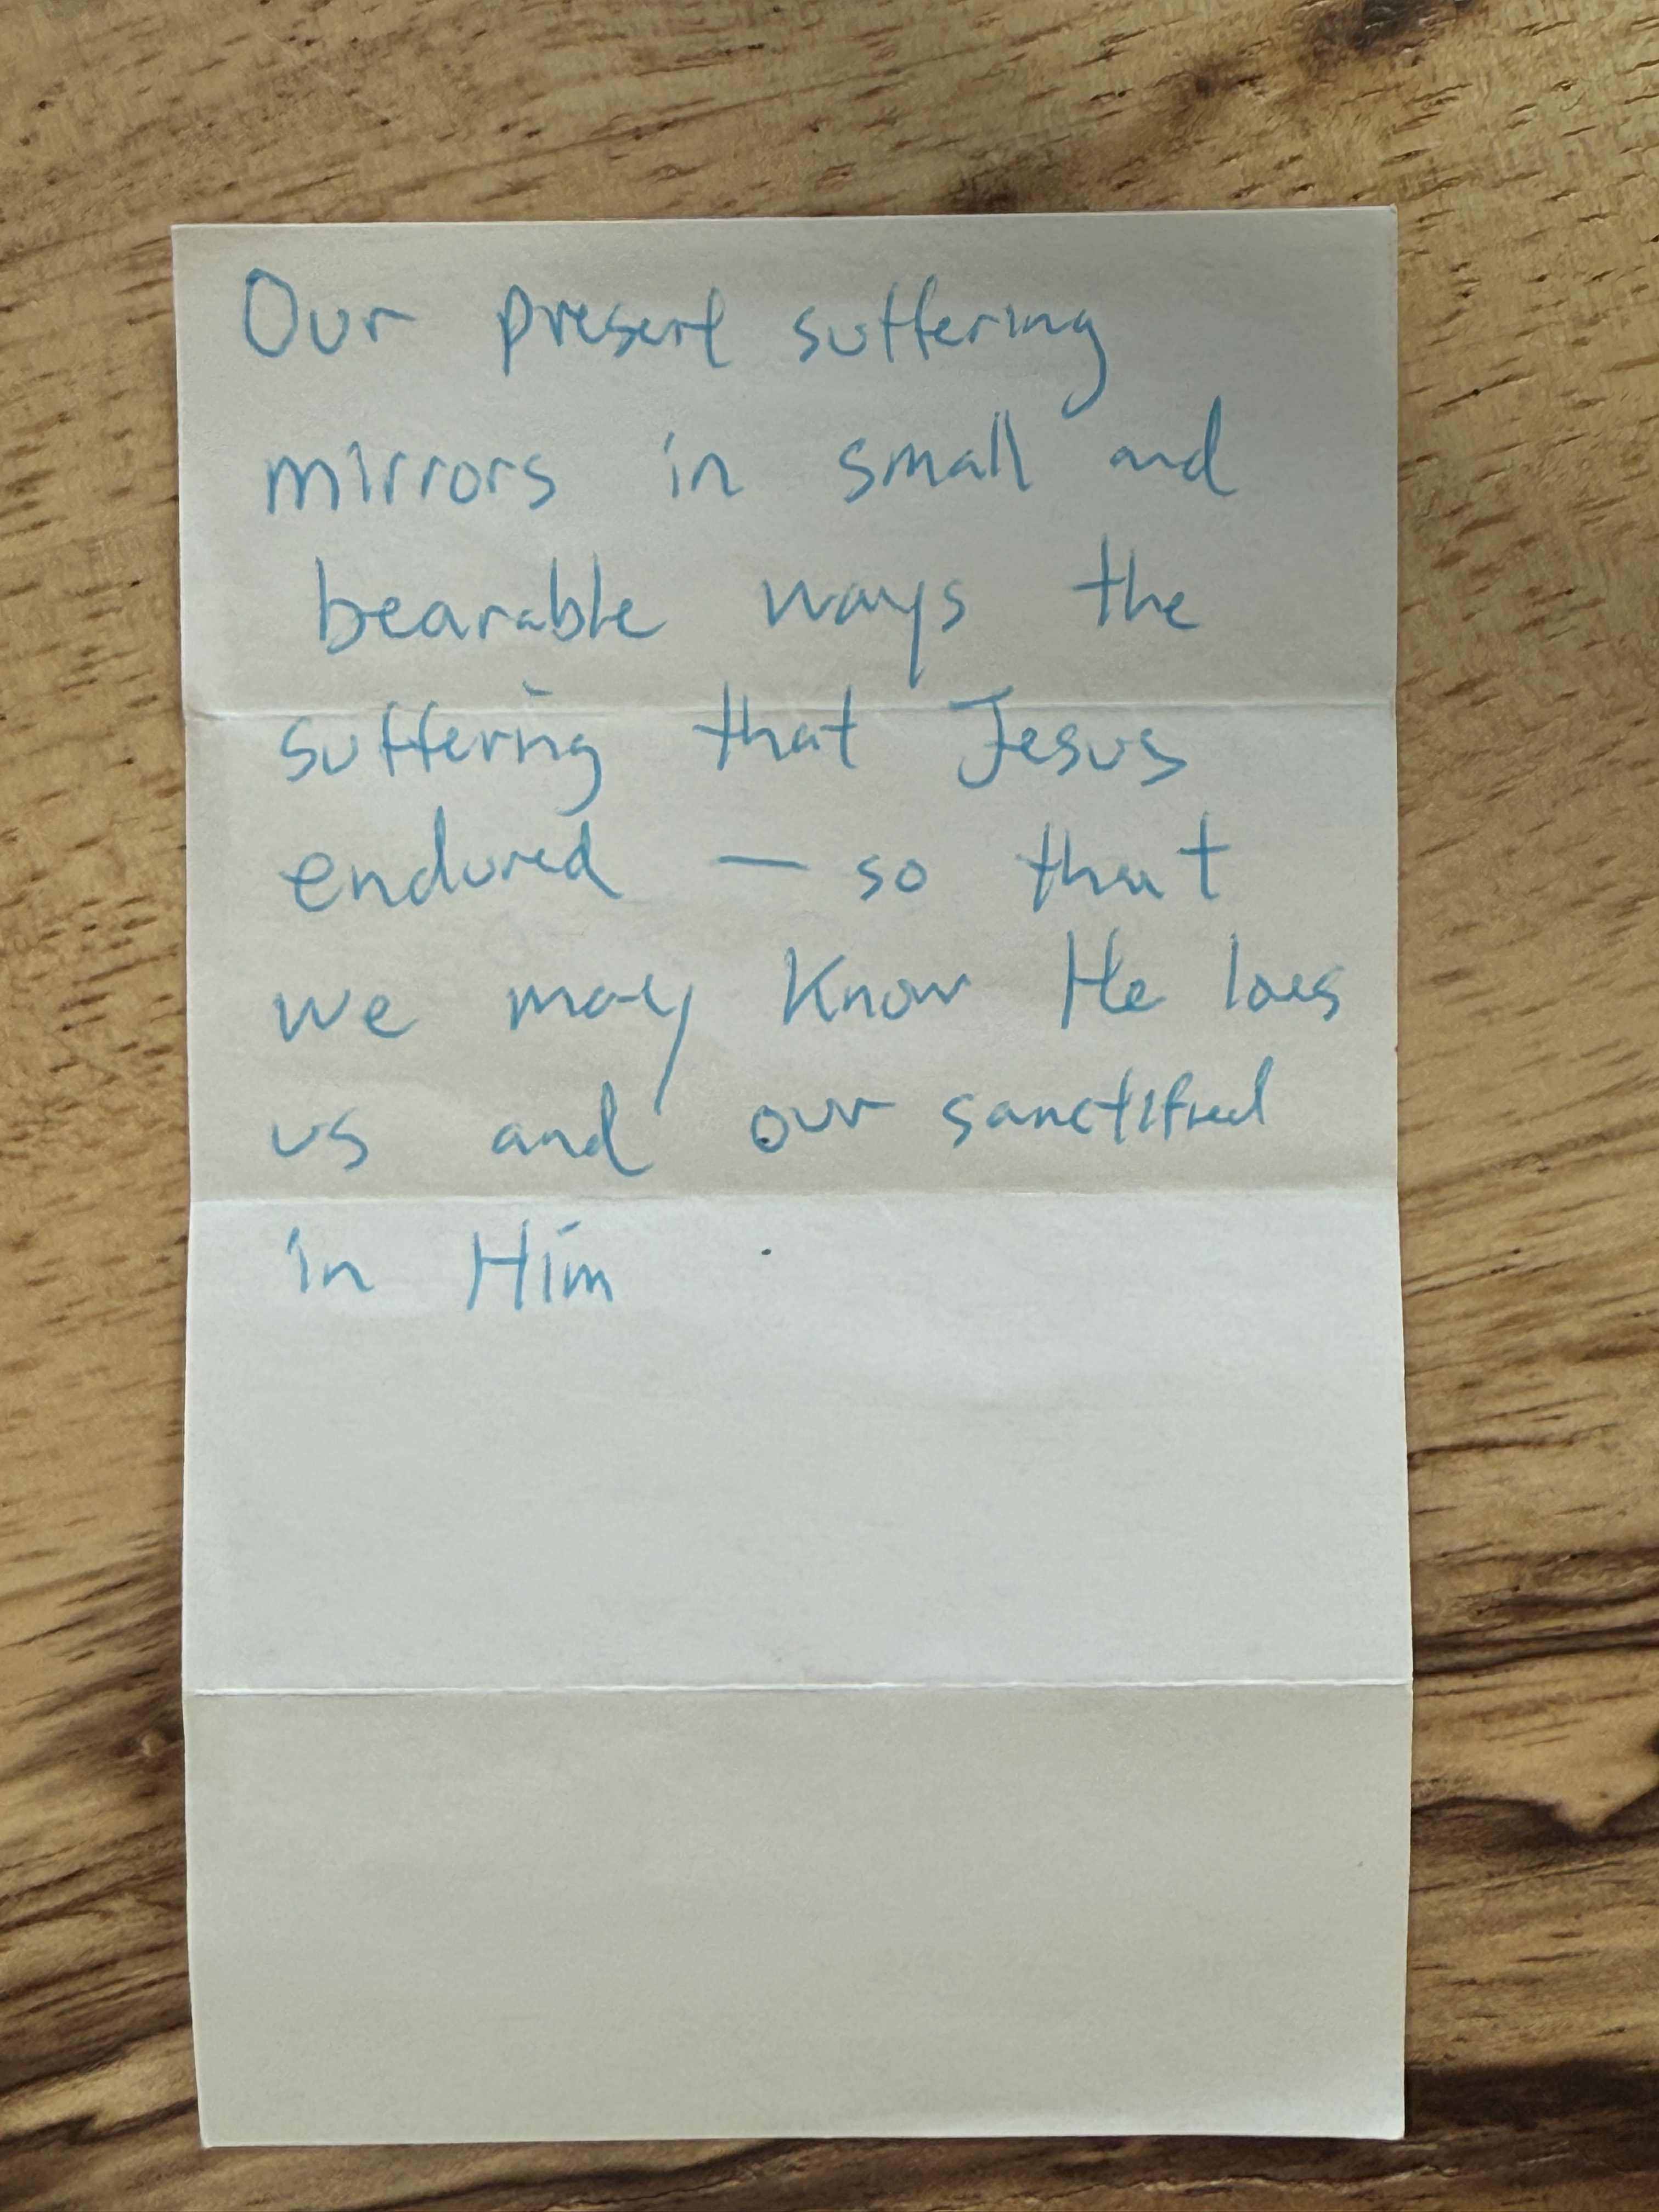 Our present suffering
mirrors in small and
bearable ways the
suffering that Jesus
endured — so that
we may know He loves
us and our sanctified
in Him